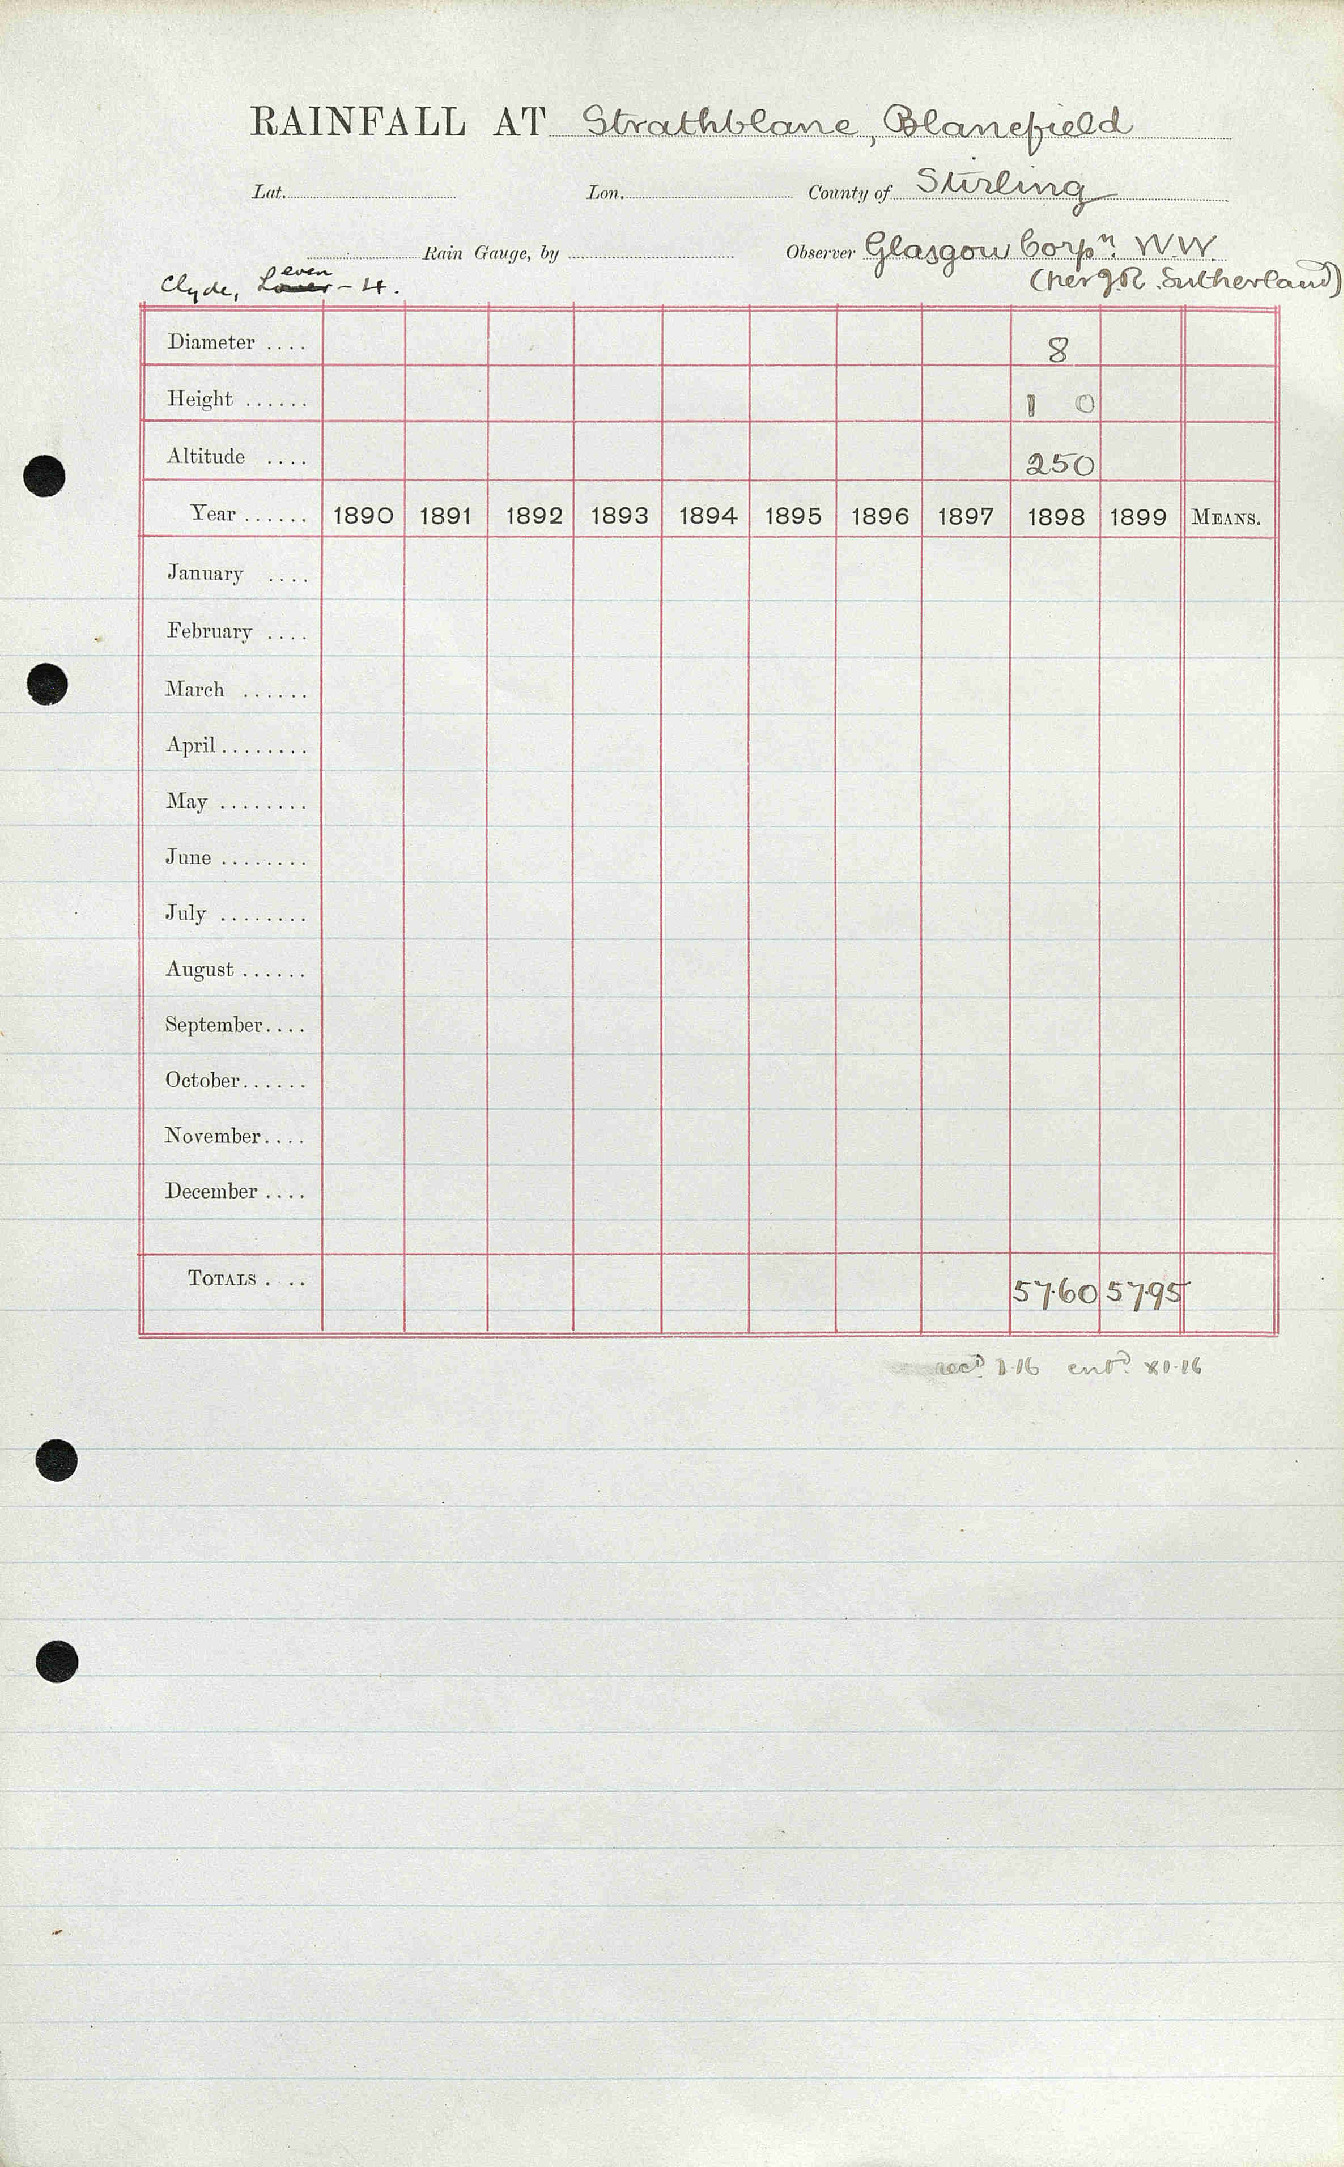 RAINFALL AT Strathblane, Blanefield
Lat. Lon. County of Stirling
Rain Gauge, by Observer Glasgow Corpn. W.W.
Clyde, Leven - 4. (per J.R. Sutherland)
Diameter .... 8
Height ...... 1 0
Altitude .... 250
Year ...... 1890 1891 1892 1893 1894 1895 1896 1897 1898 1899 MEANS.
January ....
February ....
March ......
April ........
May ........
June ........
July ........
August ......
September....
October......
November....
December ....
TOTALS . .. 57.60 57.95
recd. 1.16 entd. XI.16